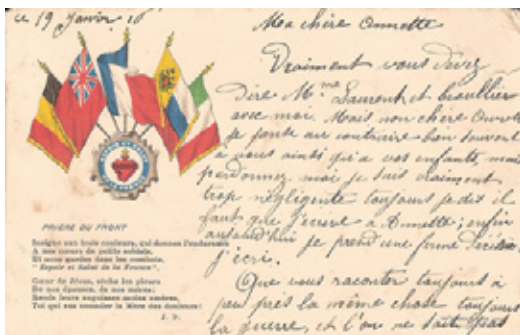 le 19 Janvier 16
Ma chère Annette
Vraiment vous devez
dire Mme Laurent et
avec moi. Mais non chère
je pense au contraire bien souvent
à vous ainsi qu'a vos enfants, mais
pardonnez moi je suis vraiment
trop négligente toujours je dis il
faut que j'ecrive à Annette; enfin
aujourd'hui je prend une ferme decision
j'ecri.
Que vous raconter toujours à
peu près la même chose toujours
la guerre, et l'on ne sait pas
ESPOIR ET SALUT
DE LA FRANCE
PRIÈRE DU FRONT
Insigne aux trois couleurs, qui donnes l'endurance
A nos cœurs de petits soldats,
Et nous gardes dans les combats,
"Espoir et Salut de la France".
Cœur de Jésus, sèche les pleurs
De nos épouses, de nos mères;
Rends leurs angoisses moins amères,
Toi qui sus consoler la Mère des douleurs!